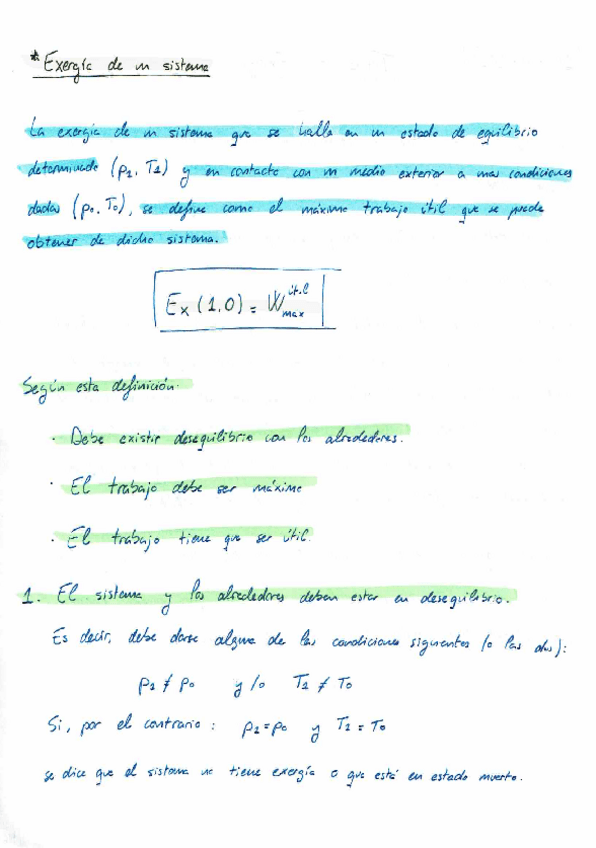 * Exergía de un sistema
La exergía de un sistema que se halla en un estado de equilibrio
determinado (p1, T1) y en contacto con un medio exterior a unas condiciones
dadas (p0, T0), se define como el máximo trabajo útil que se puede
obtener de dicho sistema.
Ex (1,0) = W útil max
Según esta definición:
· Debe existir desequilibrio con los alrededores.
· El trabajo debe ser máximo
· El trabajo tiene que ser útil.
1. El sistema y los alrededores deben estar en desequilibrio.
Es decir, debe darse alguna de las condiciones siguientes (o las dos):
p1 ≠ p0 y/o T1 ≠ T0
Si, por el contrario: p1 = p0 y T1 = T0
se dice que el sistema no tiene exergía o que está en estado muerto.